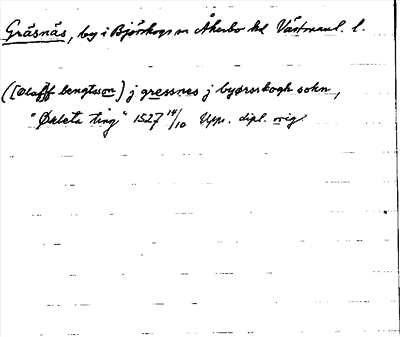 Gräsnäs, by i Björskogs sn Åkerbo hd Västmanl. l.
([olaff bengtsson) j gressnes j byørsskogh sokn,
"Økbeta ting" 1527 14/10 Upps. dipl. orig.